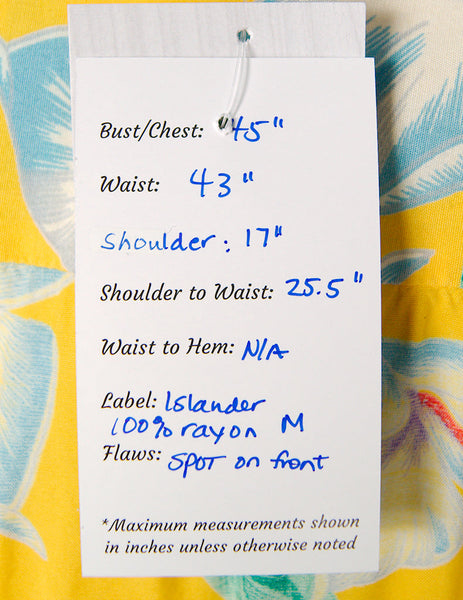 Bust/Chest: 45"
Waist: 43"
Shoulder: 17"
Shoulder to Waist: 25.5"
Waist to Hem: N/A
Label: Islander
100% rayon M
Flaws: SPOT on front
*Maximum measurements shown
in inches unless otherwise noted